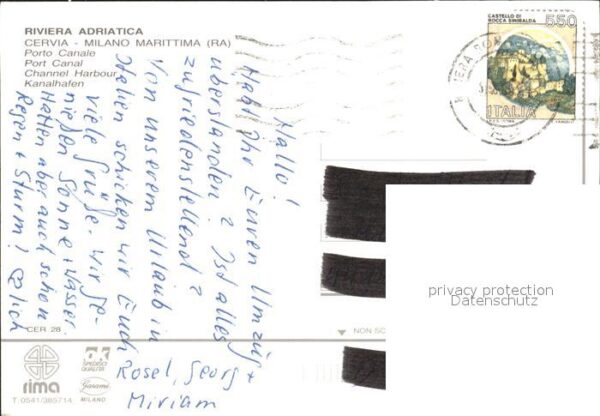 RIVIERA ADRIATICA
CERVIA - MILANO MARITTIMA (RA)
Porto Canale
Port Canal
Channel Harbour
Kanalhafen
CASTELLO DI
ROCCA SINIBALDA
550
ITALIA
Hallo!
Habt Ihr Euren Umzug
überstanden? Ist alles
zufriedenstellend?
Von unserem Urlaub in
Italien schicken wir Euch
viele Grüße. Wir ge-
nießen Sonne + Wasser.
Hatten aber auch schon
Regen + Sturm!
Rosel, Georg +
Miriam
privacy protection
Datenschutz
CER 28
NON SC
rima
T. 0541/385714
SPECIFICI
QUALITA'
Garami
MILANO